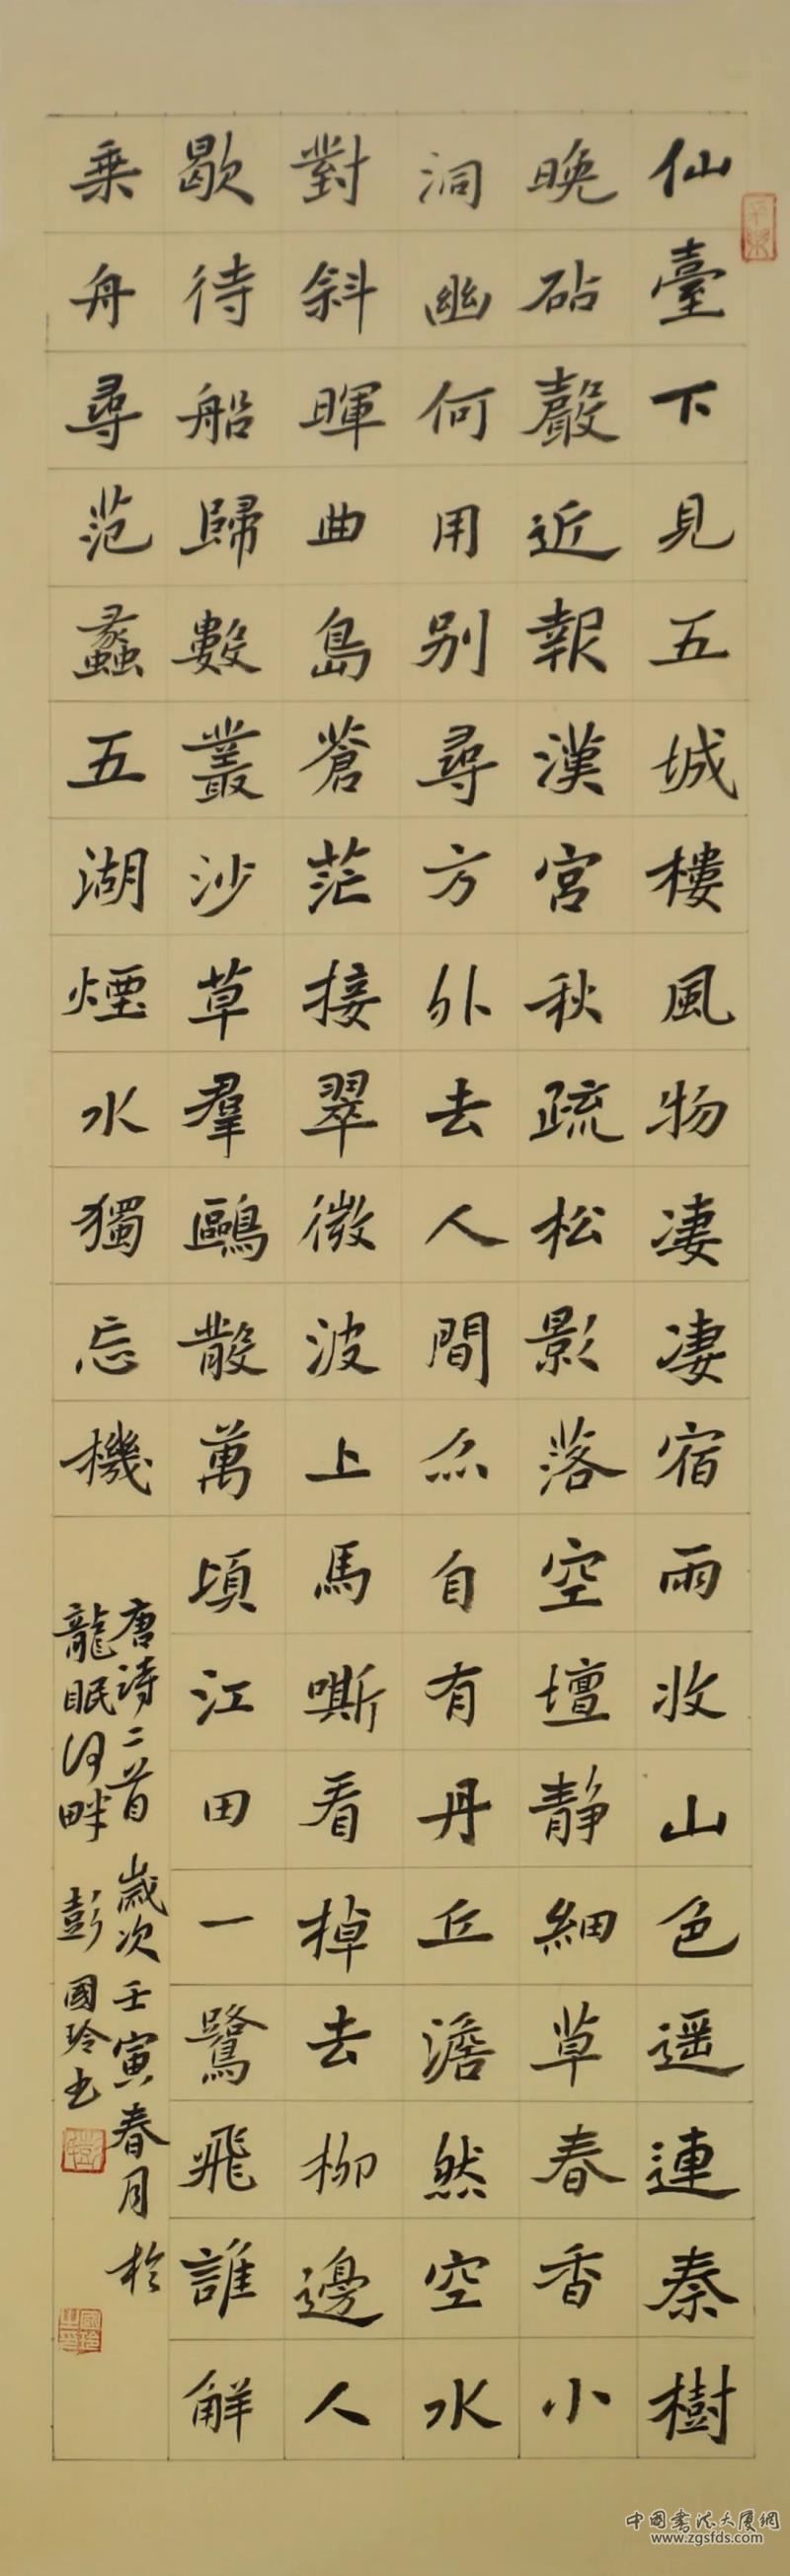 仙臺下見五城樓風物凄凄宿雨收山色遥連秦樹
晚砧聲近報漢宮秋疏松影落空壇靜細草春香小
洞幽何用別尋方外去人間亦自有丹丘澹然空水
對斜暉曲島蒼茫接翠微波上馬嘶看棹去柳邊人
歇待船歸數叢沙草羣鷗散萬頃江田一鷺飛誰解
乘舟尋范蠡五湖煙水獨忘機
唐詩二首 歲次壬寅春月於
龍眠河畔 彭國玲书
中国书法大厦網
www.zgsfds.com